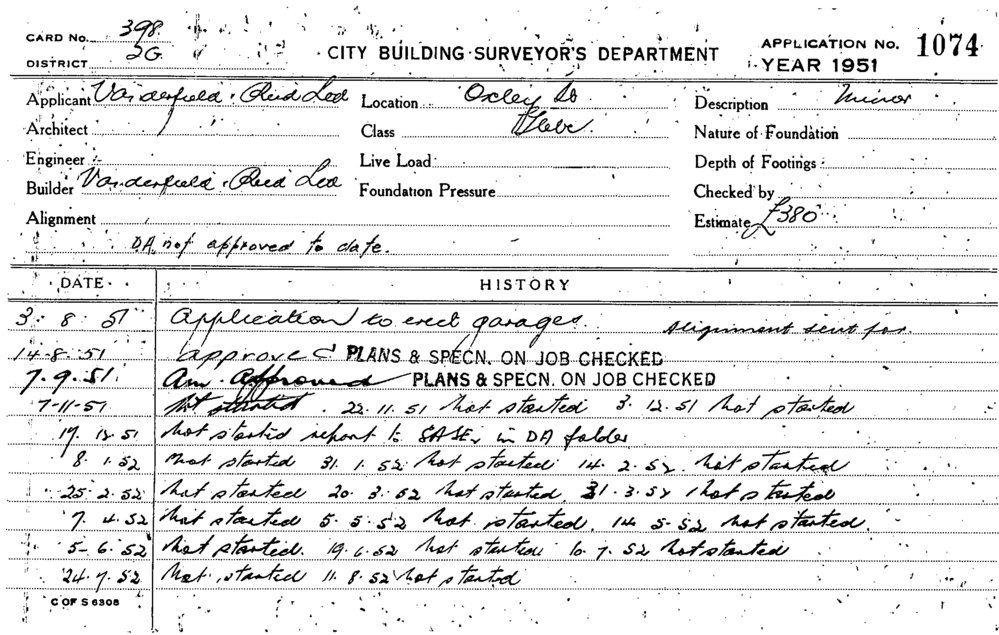 CARD No. 398
DISTRICT 2G
CITY BUILDING SURVEYOR'S DEPARTMENT
APPLICATION No. 1074
YEAR 1951
Applicant Vanderfield & Reid Ltd Location Oxley St Description Minor
Architect Class Glebe. Nature of Foundation
Engineer Live Load Depth of Footings
Builder Vanderfield & Reid Ltd Foundation Pressure Checked by
Alignment Estimate £380
DA not approved to date.
DATE HISTORY
3. 8. 51 Application to erect garages. Alignment sent for
14-8.51 approved PLANS & SPECN. ON JOB CHECKED
7.9.51. Am. Approved PLANS & SPECN. ON JOB CHECKED
7-11-51 Not started. 22.11.51 Not started 3.12.51 Not started
19. 12.51 Not started report to in DA folder
8.1.52 Not started 31.1.52 Not started 14.2.52. Not started
25.2.52 Not started 20.3.52 Not started. 31.3.52 Not started
7.4.52 Not started 5.5.52 Not started. 14 5-52 Not started.
5-6.52 Not started. 19.6.52 Not started 10.7.52 Not started
24.7.52 Not started 11.8.52 Not started
C OF S 6308